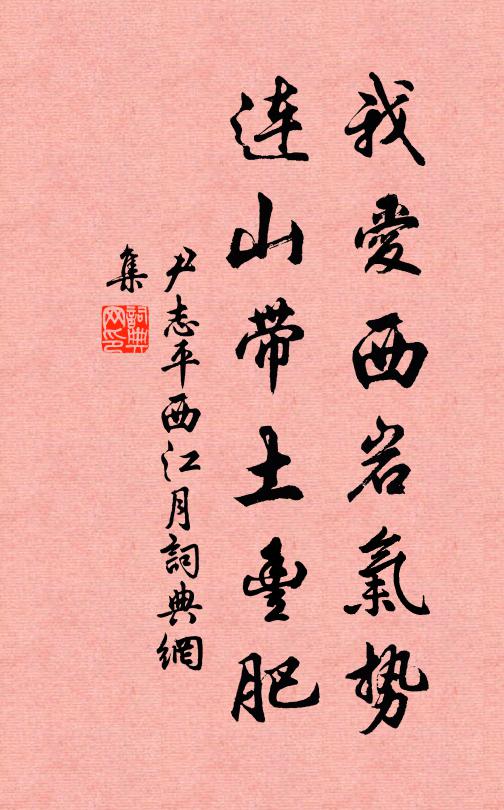 我愛西岩氣勢
連山帶土豐肥
尹志平西江月詞典網
集
詞典
网印